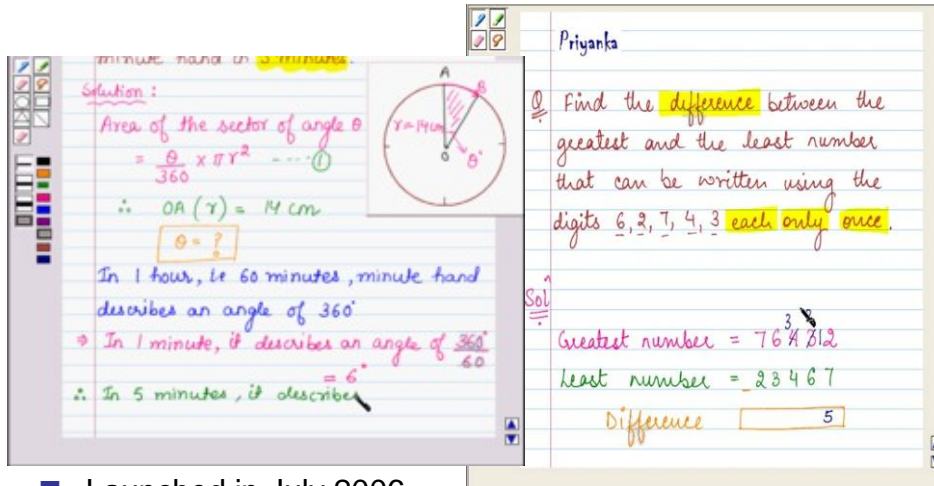 minute hand in 5 minutes.
Solution :
Area of the sector of angle θ
= θ/360 × π r² ----①
∴ OA (r) = 14 cm
θ = ?
In 1 hour, ie 60 minutes, minute hand
describes an angle of 360°
⇒ In 1 minute, it describes an angle of 360°/60
= 6°
∴ In 5 minutes, it describes
A
B
r=14cm
O
θ°
Priyanka
Q Find the difference between the
greatest and the least number
that can be written using the
digits 6, 2, 7, 4, 3 each only once.
Solⁿ
Greatest number = 76432
Least number = 23467
Difference 5
Launched in July 2006